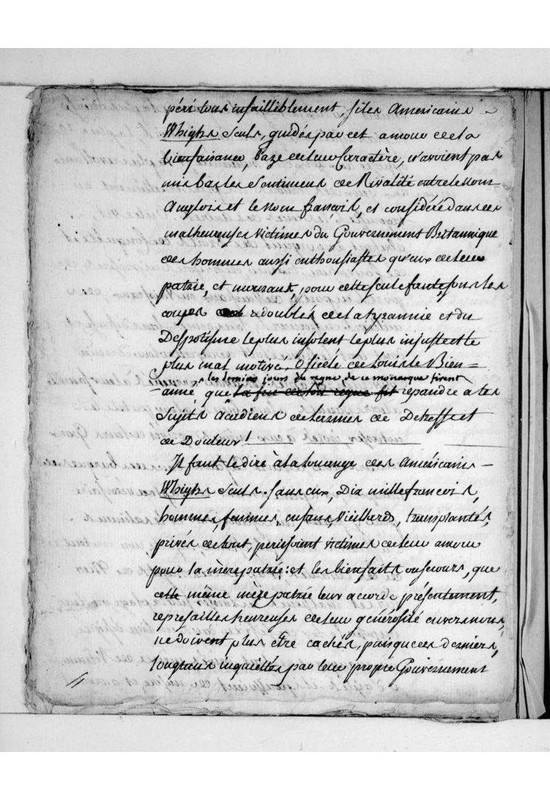 péri tous infailliblement, si les Americains
Whighs seuls, guidés par cet amour de la
bienfaisance, baze de leur Caractère, n'avoient pas
mis bas les Sentimens de Rivalité entre le nom
Anglois et le nom francois, et considéré dans ces
malheureuses victimes du Gouvernement Britannique
des hommes aussi enthousiastes qu'eux de leur
patrie, et mourant, pour cette seule faute, sous les
coups redoublés de la tyrannie et du
Despotisme le plus insolent le plus injuste et le
plus mal motivé. O siècle de Louis le Bien =
les derniers jours du regne de ce monarque firent
aimé que la fin de son regne fit répandre à tes
Sujets Acadiens de larmes de Détresse et
de Douleur!
Il faut le dire à la louange des Américains =
Whighs seuls. sans eux, Dix mille francois,
hommes, femmes, enfans, vieillards, transplantés
privés de tout, périssoient victimes de leur amour
pour la mère patrie: et les bienfaits ou secours, que
cette même mère patrie leur accorde présentement,
represailles heureuses de leur générosité envers nous,
ne doivent plus être cachés, puisque ces derniers,
longtems inquiétés par leur propre Gouvernement